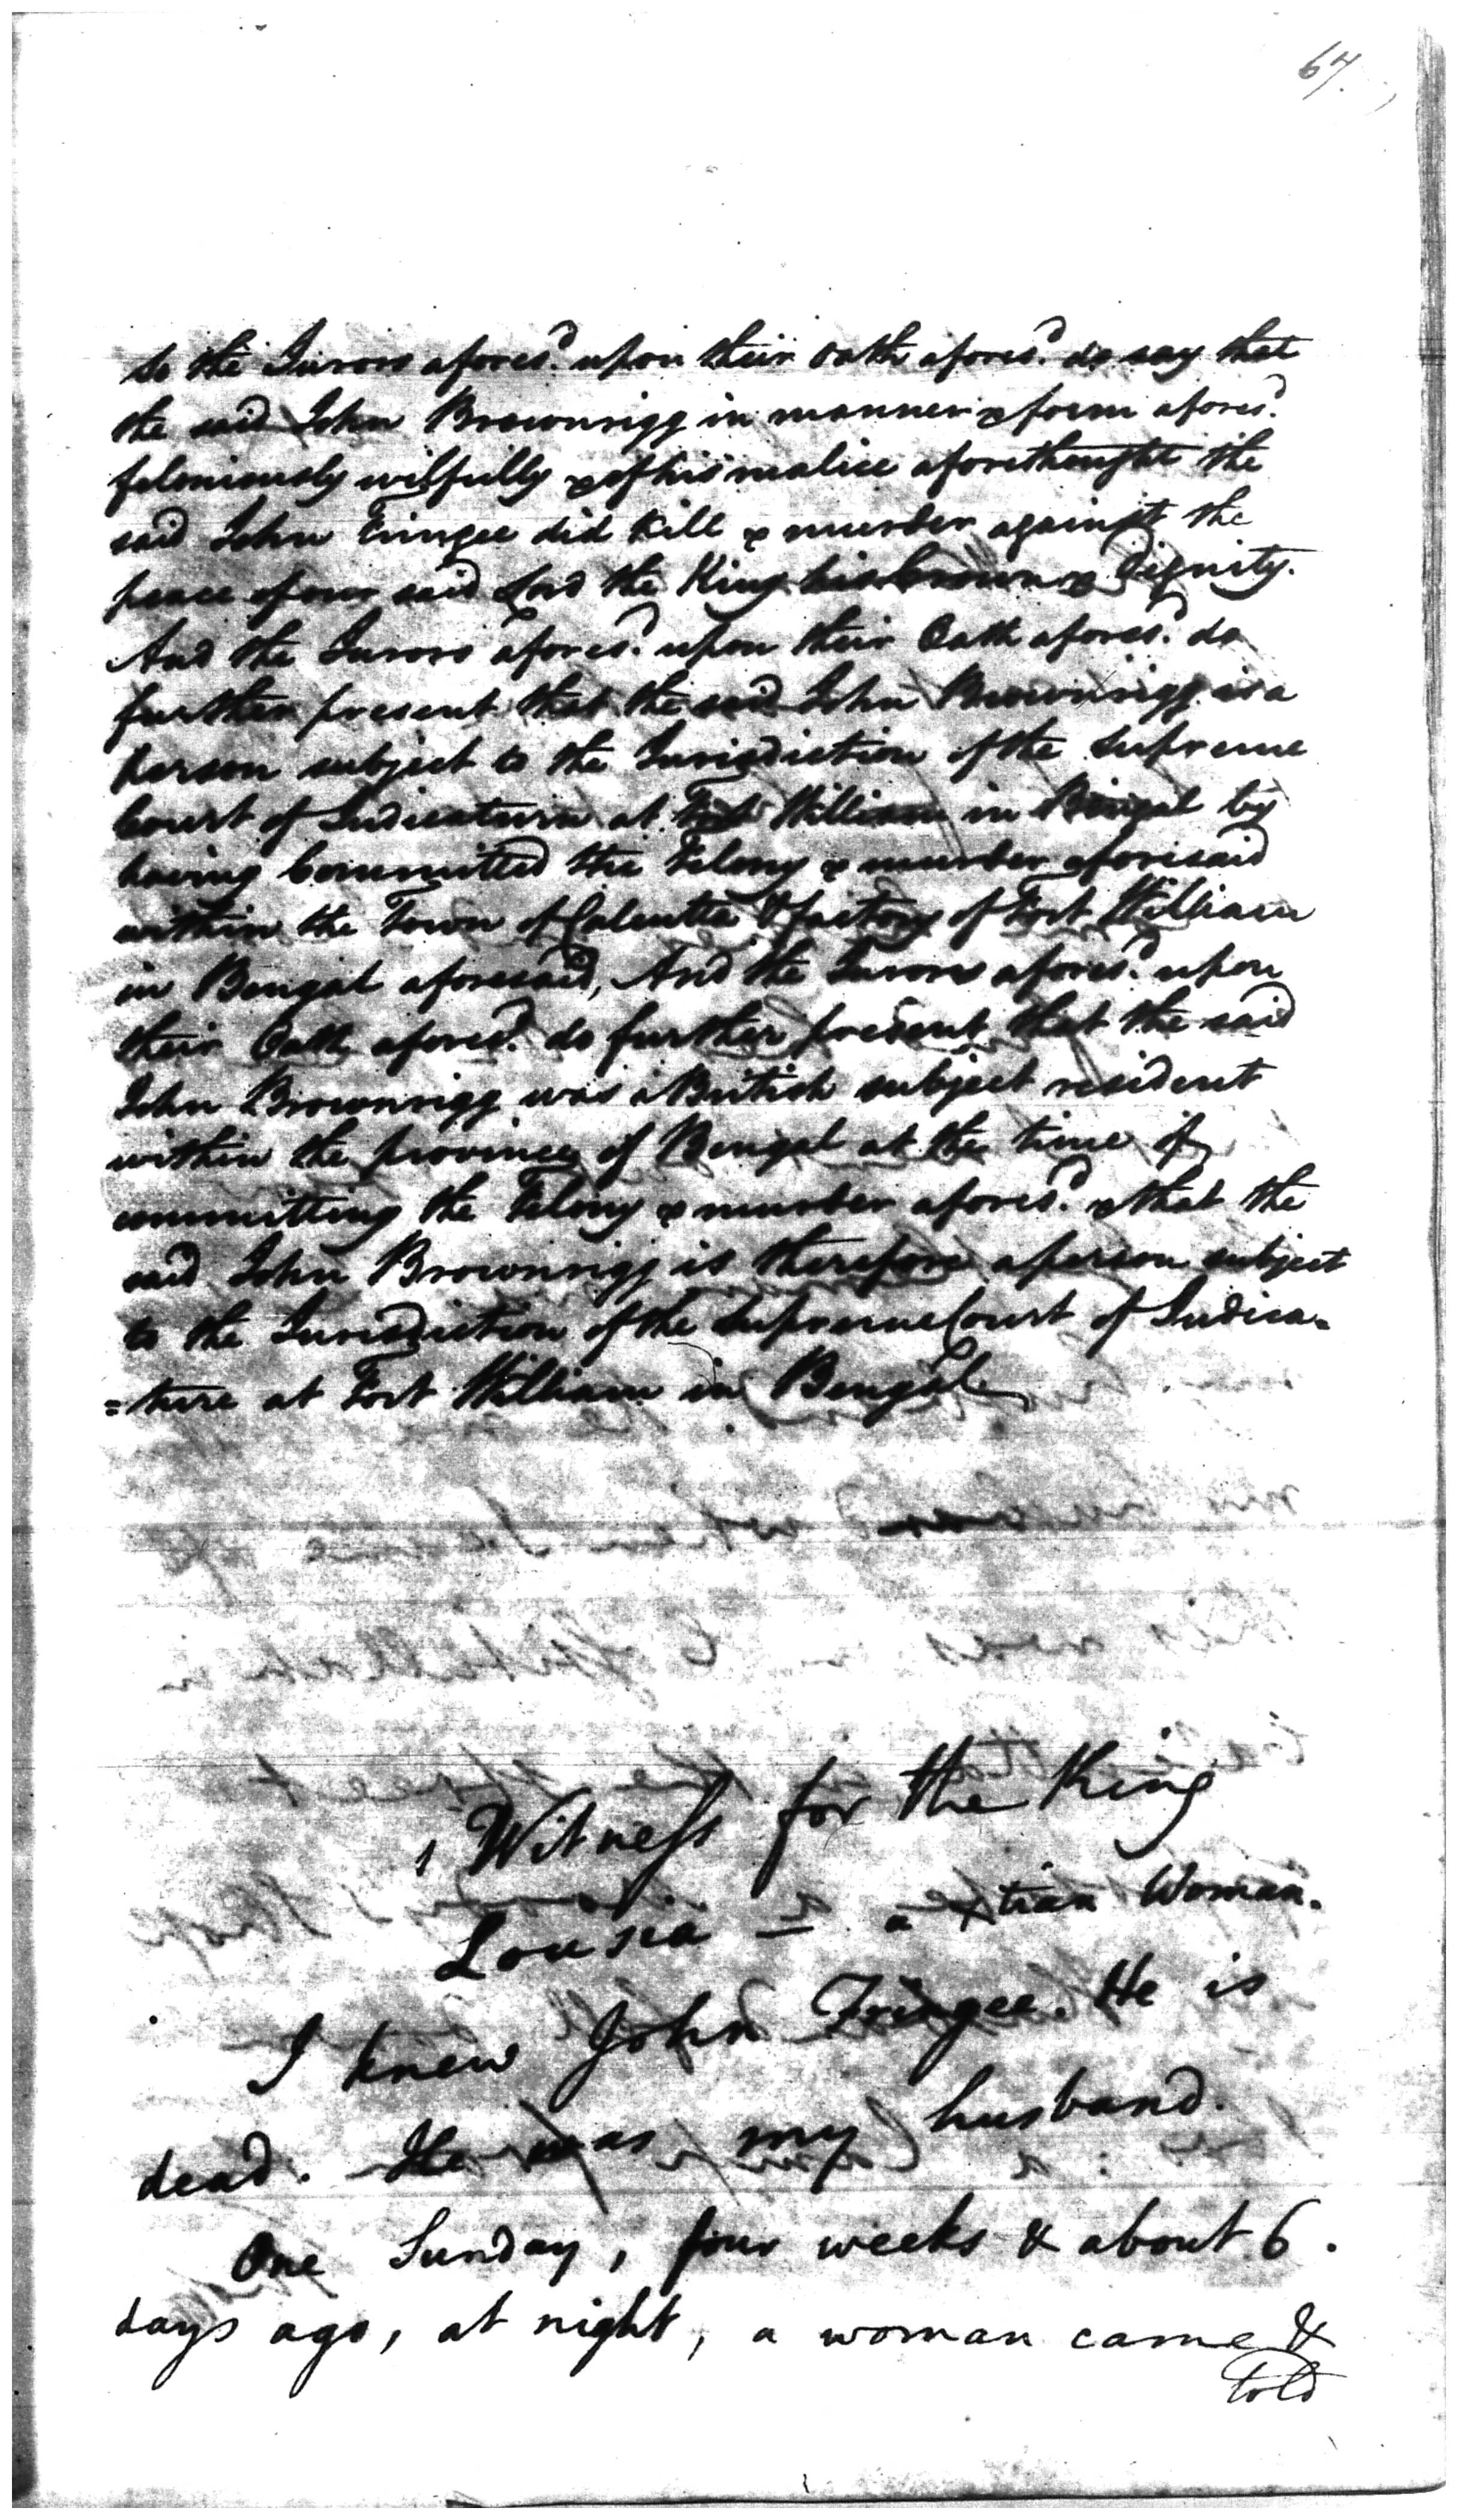 67.
So the Jurors afores.d upon their Oath afores.d do say that
the said John Brownrigg in manner & form afores.d
feloniously wilfully & of his malice aforethought the
said John Fringee did kill & murder against the
peace of our said Lord the King his Crown & Dignity.
And the Jurors afores.d upon their Oath afores.d do
further present that the said John Brownrigg is a
person subject to the Jurisdiction of the Supreme
Court of Judicature at Fort William in Bengal by
having Committed the Felony & murder aforesaid
within the Town of Calcutta & factory of Fort William
in Bengal aforesaid, And the Jurors afores.d upon
their Oath afores.d do further present that the said
John Brownrigg was a British subject resident
within the province of Bengal at the time of
committing the Felony & murder afores.d & that the
said John Brownrigg is therefore a person subject
to the Jurisdiction of the Supreme Court of Judica=
=ture at Fort William in Bengal.
1 Witness for the King
Lousia — a Xtian Woman.
I knew John Fringee. He is
dead. He was my husband.
One Sunday, four weeks & about 6.
days ago, at night, a woman came &
told